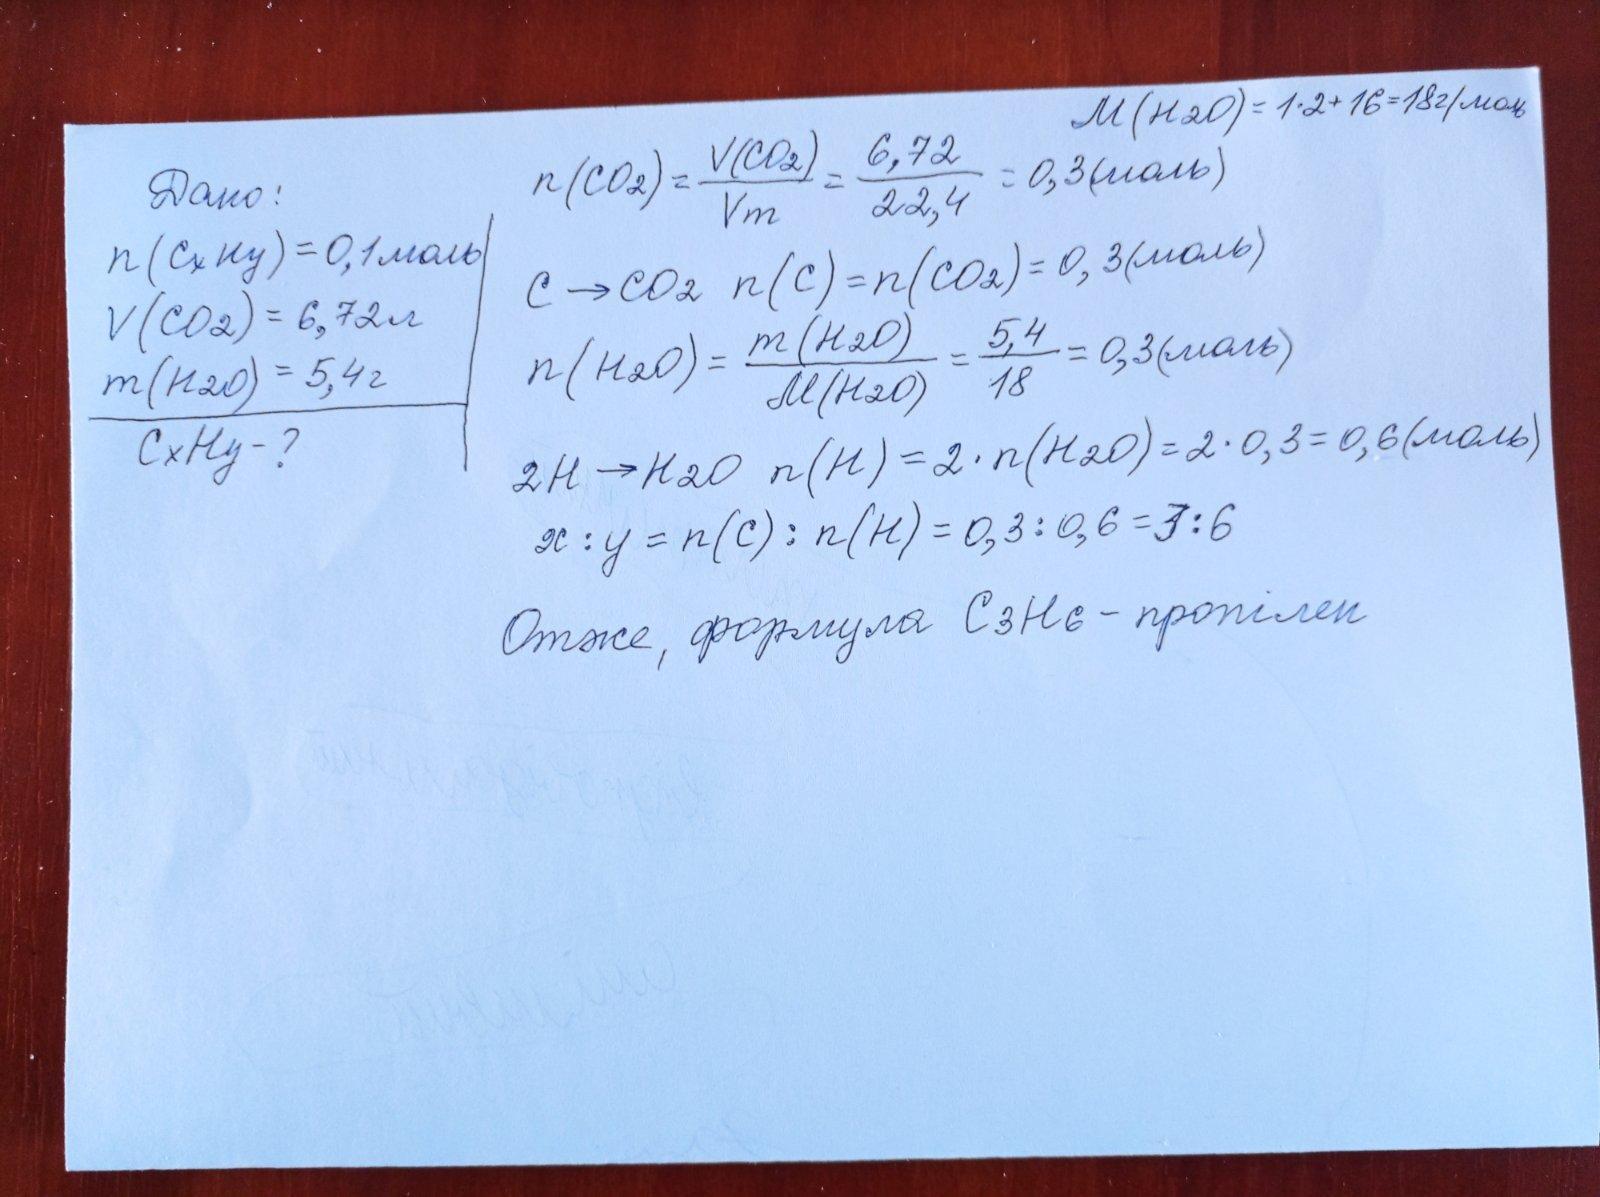 M(H2O) = 1·2+16=18г/моль
Дано:
n(CxHy)=0,1моль
V(CO2)= 6,72л
m(H2O) = 5,4г
CxHy-?
n(CO2)= V(CO2)/Vm = 6,72/22,4 = 0,3(моль)
C → CO2 n(C)=n(CO2)= 0,3(моль)
n(H2O) = m(H2O)/M(H2O) = 5,4/18 = 0,3(моль)
2H → H2O n(H) = 2·n(H2O)=2·0,3=0,6(моль)
x:y = n(C): n(H)=0,3:0,6=3:6
Отже, формула C3H6 - пропілен